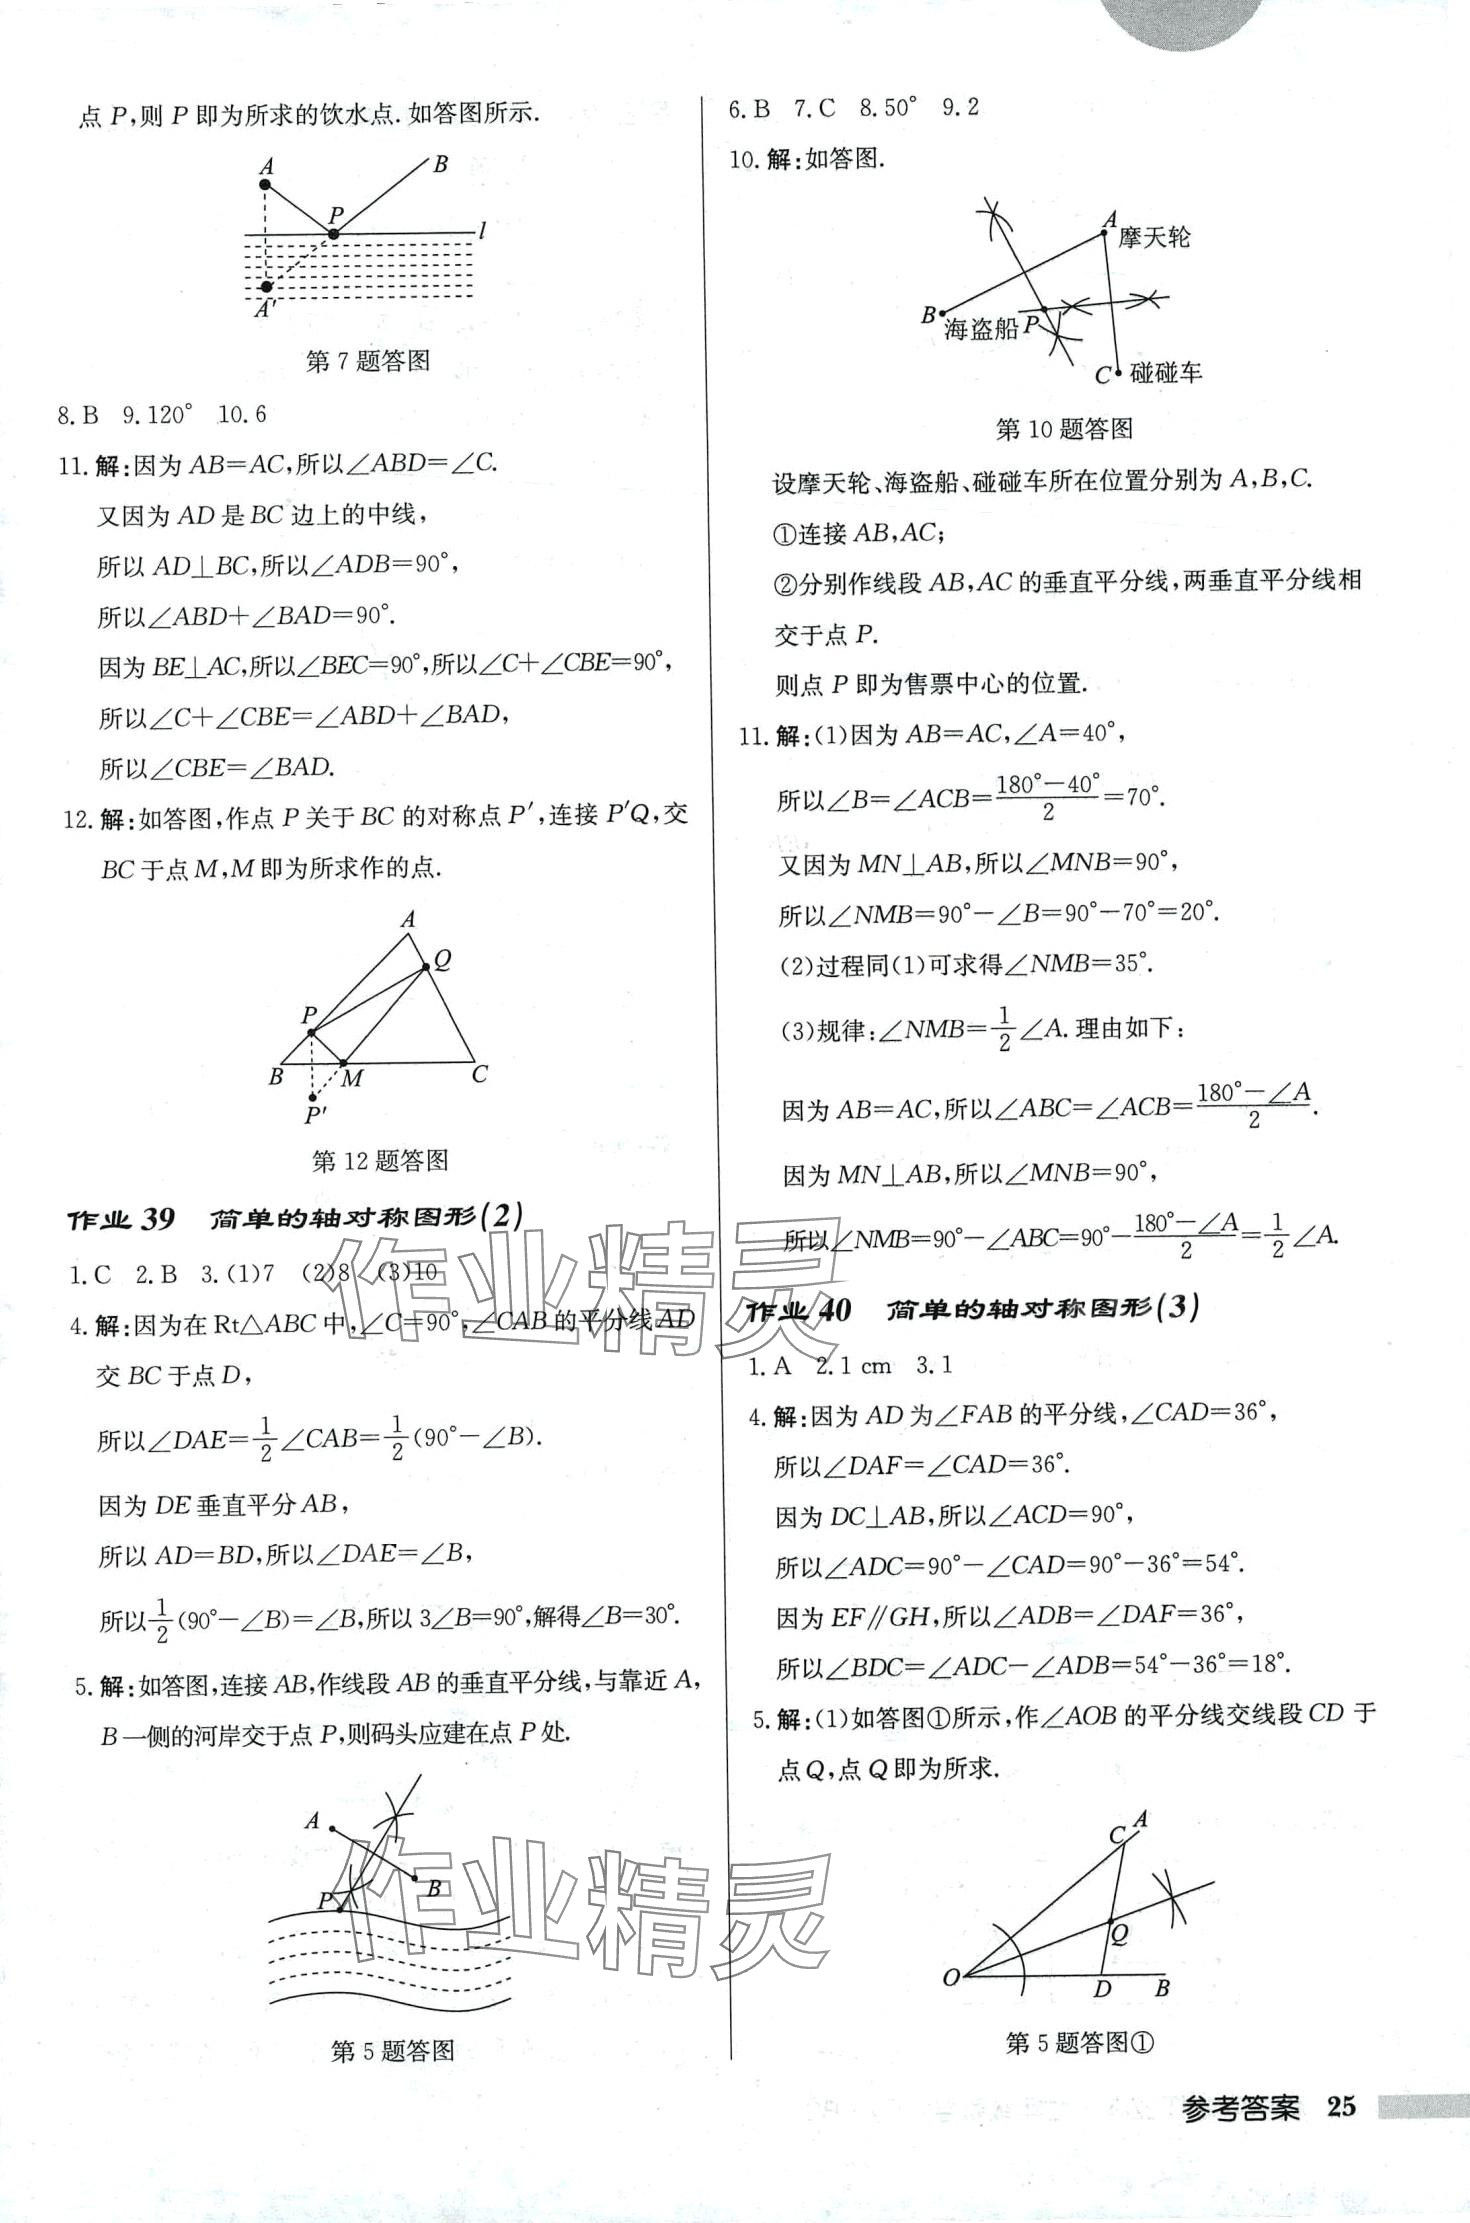 点 P,则 P 即为所求的饮水点. 如答图所示.
A
B
P
l
A′
第 7 题答图
8. B  9. 120°  10. 6
11. 解:因为 AB=AC,所以∠ABD=∠C.
又因为 AD 是 BC 边上的中线,
所以 AD⊥BC,所以∠ADB=90°,
所以∠ABD+∠BAD=90°.
因为 BE⊥AC,所以∠BEC=90°,所以∠C+∠CBE=90°,
所以∠C+∠CBE=∠ABD+∠BAD,
所以∠CBE=∠BAD.
12. 解:如答图,作点 P 关于 BC 的对称点 P′,连接 P′Q,交
BC 于点 M,M 即为所求作的点.
A
Q
P
B
M
C
P′
第 12 题答图
作业 39  简单的轴对称图形(2)
1. C  2. B  3. (1)7  (2)8  (3)10
4. 解:因为在 Rt△ABC 中,∠C=90°,∠CAB 的平分线 AD
交 BC 于点 D,
所以∠DAE=1/2∠CAB=1/2(90°-∠B).
因为 DE 垂直平分 AB,
所以 AD=BD,所以∠DAE=∠B,
所以1/2(90°-∠B)=∠B,所以 3∠B=90°,解得∠B=30°.
5. 解:如答图,连接 AB,作线段 AB 的垂直平分线,与靠近 A,
B 一侧的河岸交于点 P,则码头应建在点 P 处.
A
B
P
第 5 题答图
6. B  7. C  8. 50°  9. 2
10. 解:如答图.
A
摩天轮
B
海盗船
P
C
碰碰车
第 10 题答图
设摩天轮、海盗船、碰碰车所在位置分别为 A,B,C.
①连接 AB,AC;
②分别作线段 AB,AC 的垂直平分线,两垂直平分线相
交于点 P.
则点 P 即为售票中心的位置.
11. 解:(1)因为 AB=AC,∠A=40°,
所以∠B=∠ACB=(180°-40°)/2=70°.
又因为 MN⊥AB,所以∠MNB=90°,
所以∠NMB=90°-∠B=90°-70°=20°.
(2)过程同(1)可求得∠NMB=35°.
(3)规律:∠NMB=1/2∠A. 理由如下:
因为 AB=AC,所以∠ABC=∠ACB=(180°-∠A)/2.
因为 MN⊥AB,所以∠MNB=90°,
所以∠NMB=90°-∠ABC=90°-(180°-∠A)/2=1/2∠A.
作业 40  简单的轴对称图形(3)
1. A  2. 1 cm  3. 1
4. 解:因为 AD 为∠FAB 的平分线,∠CAD=36°,
所以∠DAF=∠CAD=36°.
因为 DC⊥AB,所以∠ACD=90°,
所以∠ADC=90°-∠CAD=90°-36°=54°.
因为 EF∥GH,所以∠ADB=∠DAF=36°,
所以∠BDC=∠ADC-∠ADB=54°-36°=18°.
5. 解:(1)如答图①所示,作∠AOB 的平分线交线段 CD 于
点 Q,点 Q 即为所求.
C
A
Q
O
D
B
第 5 题答图①
作业精灵
作业精灵
参考答案  25